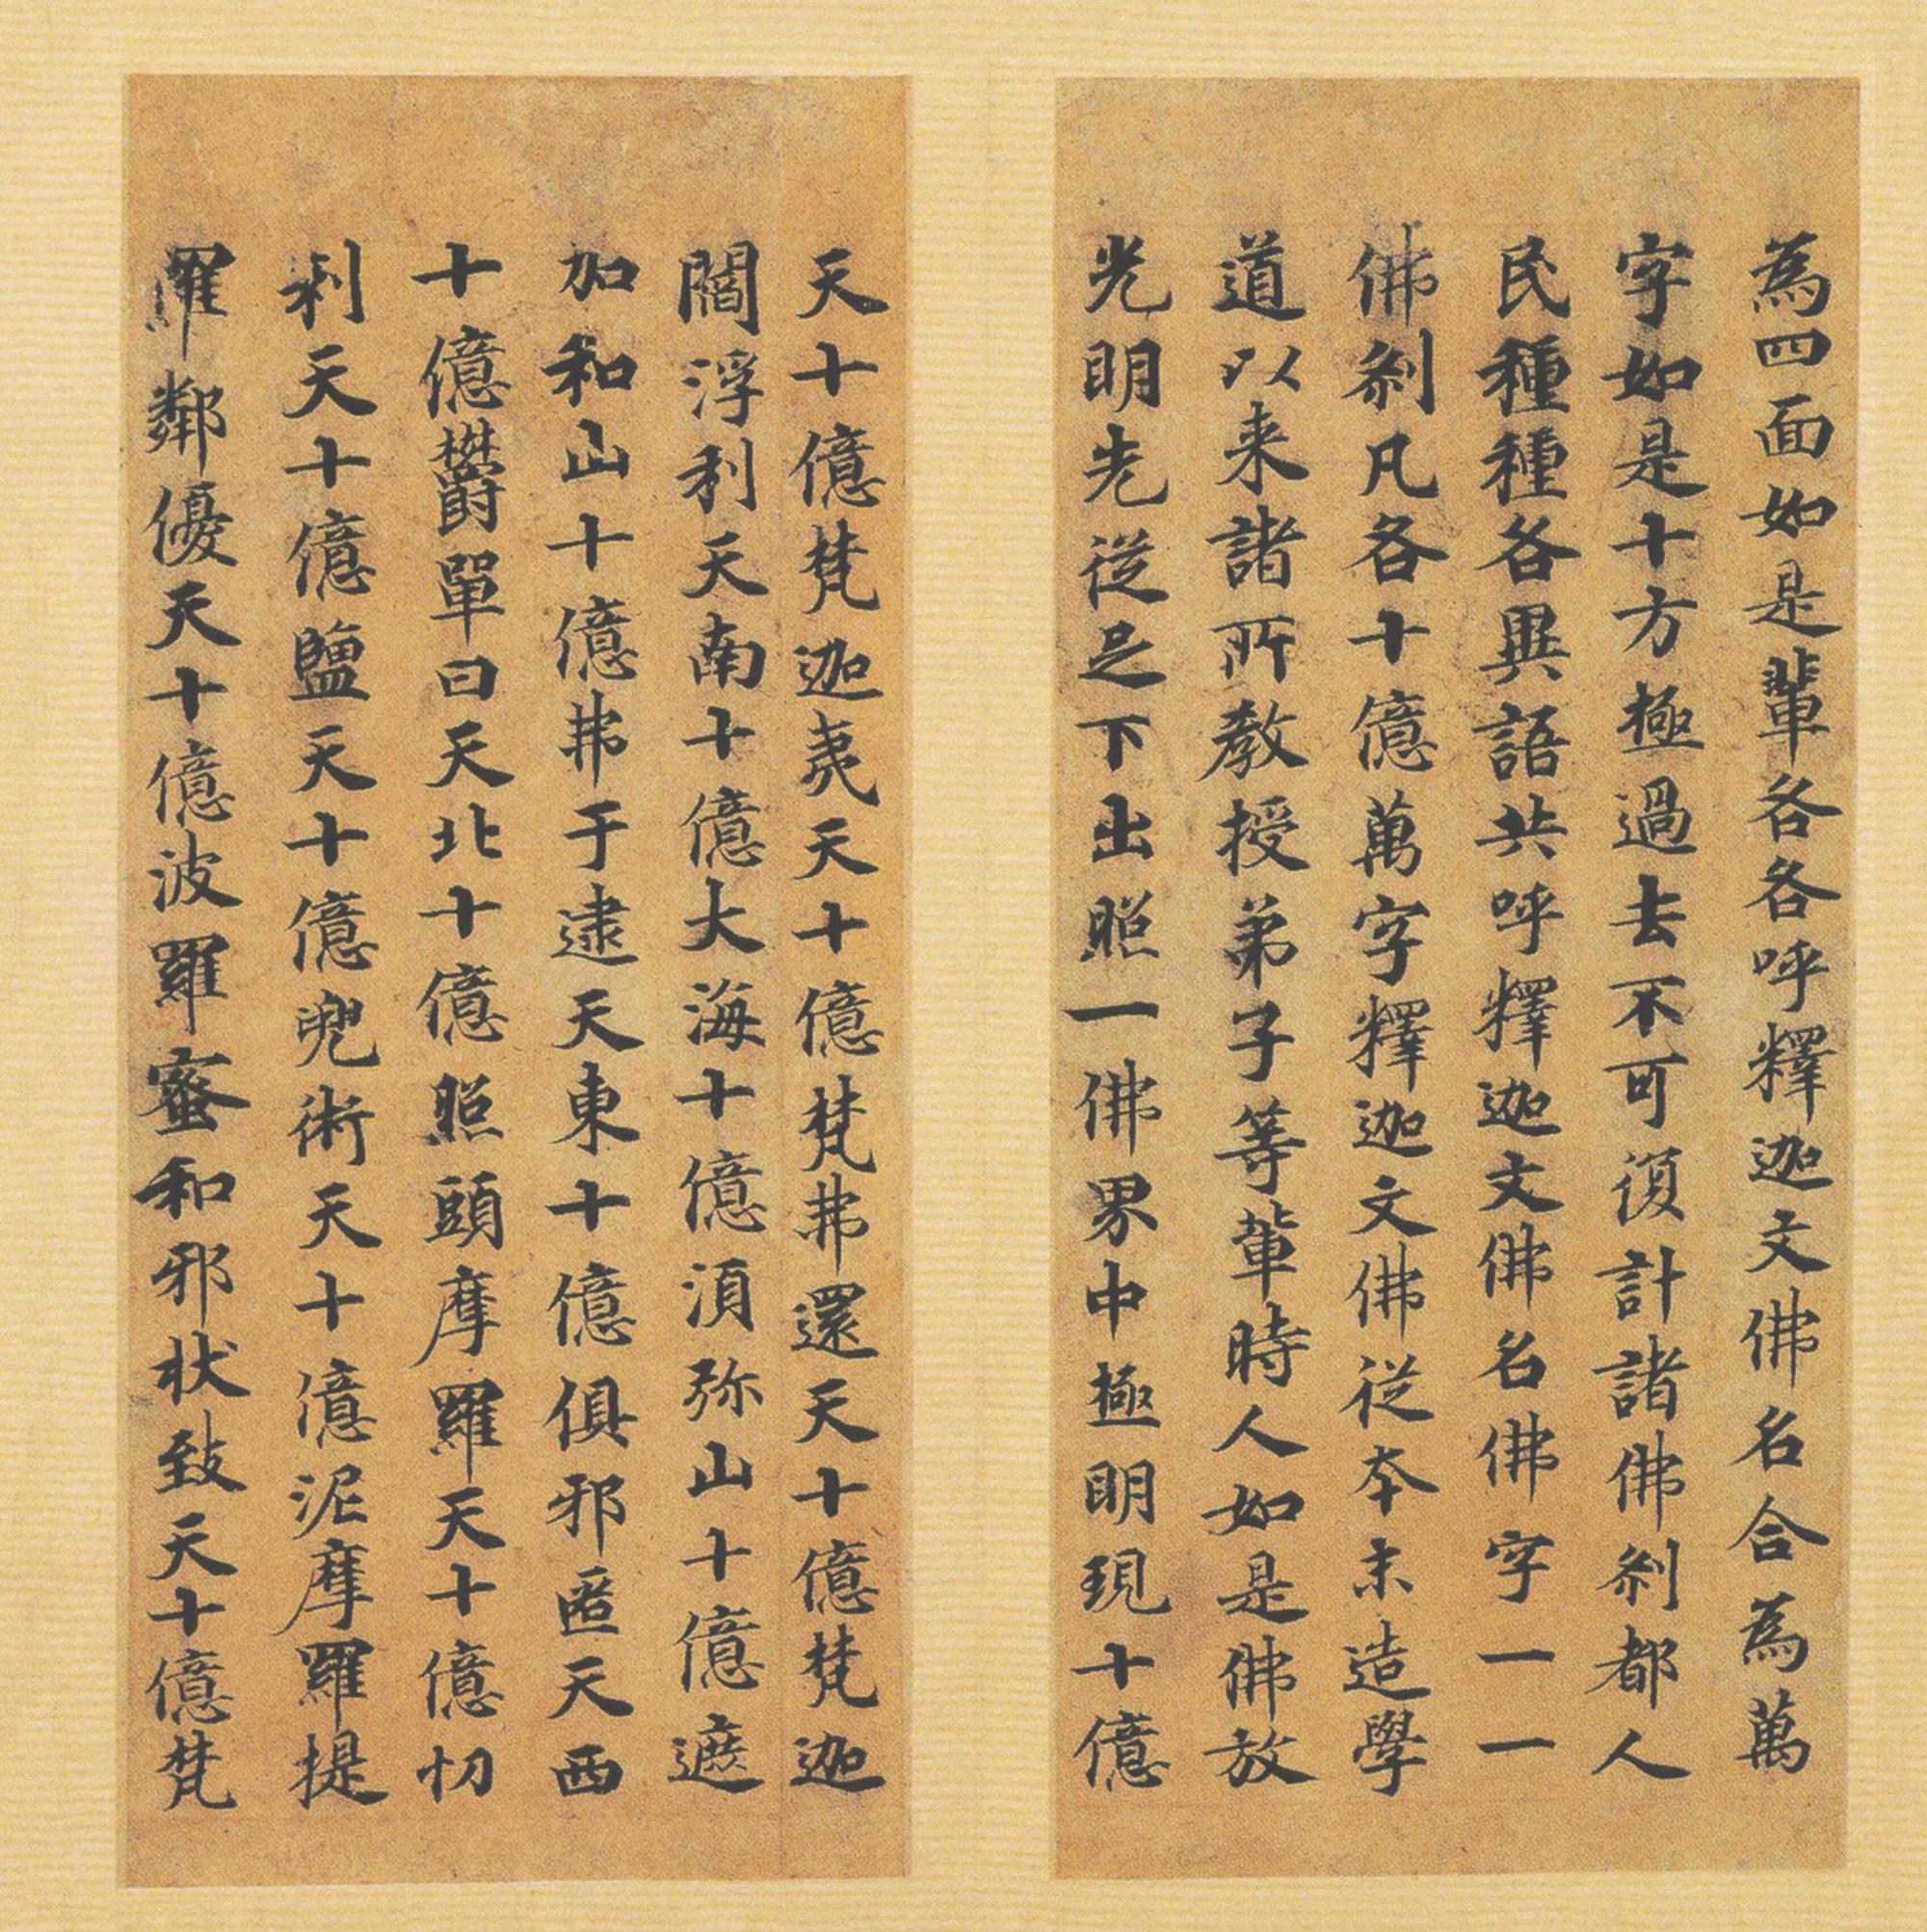 為四面如是輩各各呼釋迦文佛名合為萬
字如是十方極過去不可復計諸佛剎都人
民種種各異語共呼釋迦文佛名佛字一一
佛剎凡各十億萬字釋迦文佛從本末造學
道以来諸所教授弟子等輩時人如是佛放
光明先從足下出照一佛界中極明現十億
天十億梵迦夷天十億梵弗還天十億梵迦
閻浮利天南十億大海十億湏弥山十億遮
加和山十億弗于逮天東十億俱邪匿天西
十億欝單曰天北十億照頭摩羅天十億忉
利天十億鹽天十億兜術天十億泥摩羅提
羅鄰優天十億波羅蜜和邪状致天十億梵